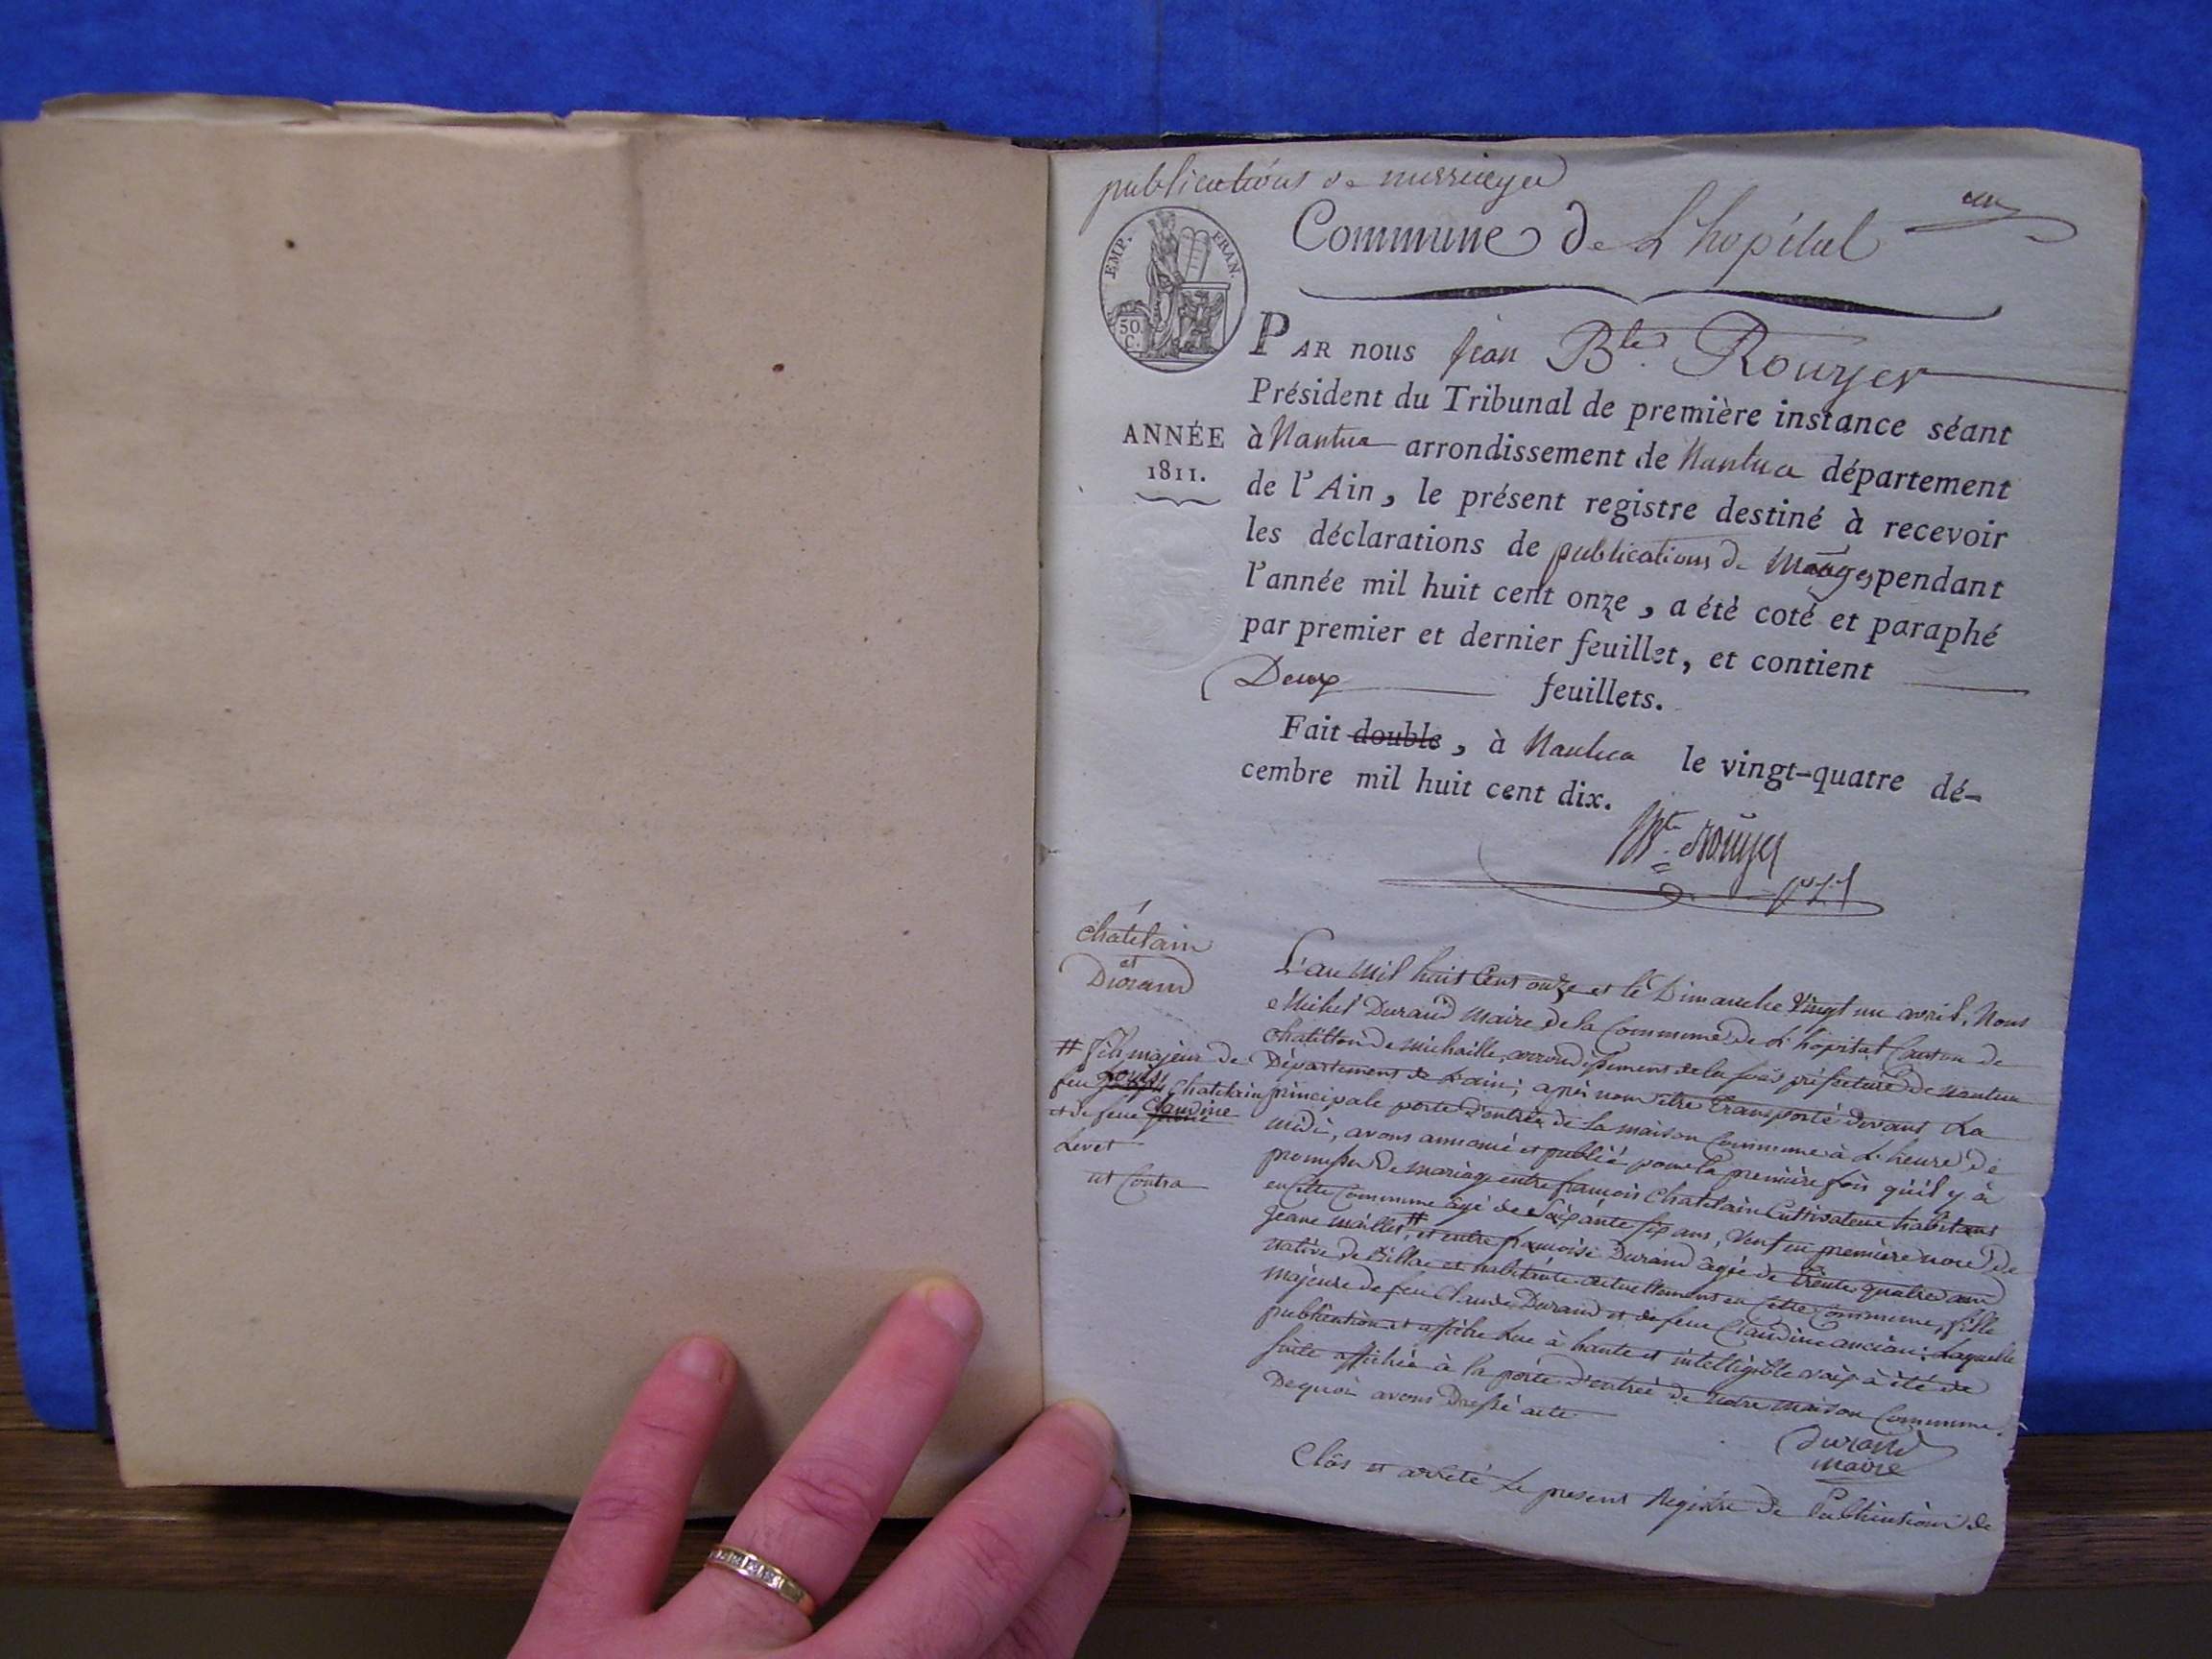 publications de marriage
un
Commune de L'hopital
EMP. FRAN.
50
C.
PAR nous jean Bte Rouyer
Président du Tribunal de première instance séant
ANNÉE
1811.
à Nantua arrondissement de Nantua département
de l'Ain, le présent registre destiné à recevoir
les déclarations de publications de Mariages pendant
l'année mil huit cent onze, a été coté et paraphé
par premier et dernier feuillet, et contient
Deux feuillets.
Fait double, à Nantua le vingt-quatre dé-
cembre mil huit cent dix.
Bte Rouyer
Chatelain
et
Durand
# fils majeur de
feu Chatelain
et de feue Claudine
Levet
L'an Mil huit Cent onze et le Dimanche Vingt un avril, Nous
Michel Durand Maire de la Commune de L'hopital Canton de
Chatillon de Michaille, arrondissement de la sous préfecture de Nantua
Département de L'ain; après nous être transporté devant La
principale porte d'entrée de La maison Commune à L'heure de
midi, avons annoncé et publié pour la première fois qu'il y à
promesse de mariage entre françois Chatelain Cultivateur habitant
en Cette Commune agé de Soixante six ans, Veuf en première noce de
Jeane Maillet #, et entre françoise Durand agée de trente quatre ans
native de Billiat et habitante actuellement en Cette Commune, fille
majeure de feu Claude Durand et de feue Claudine ancian; Laquelle
publication et affiche Lue à haute et intelligible voix à été de
suite affichée à la porte d'entrée de Notre Maison Commune.
De quoi avons Dressé acte
durand
maire
Clôs et arrêté Le present Registre de Publications de